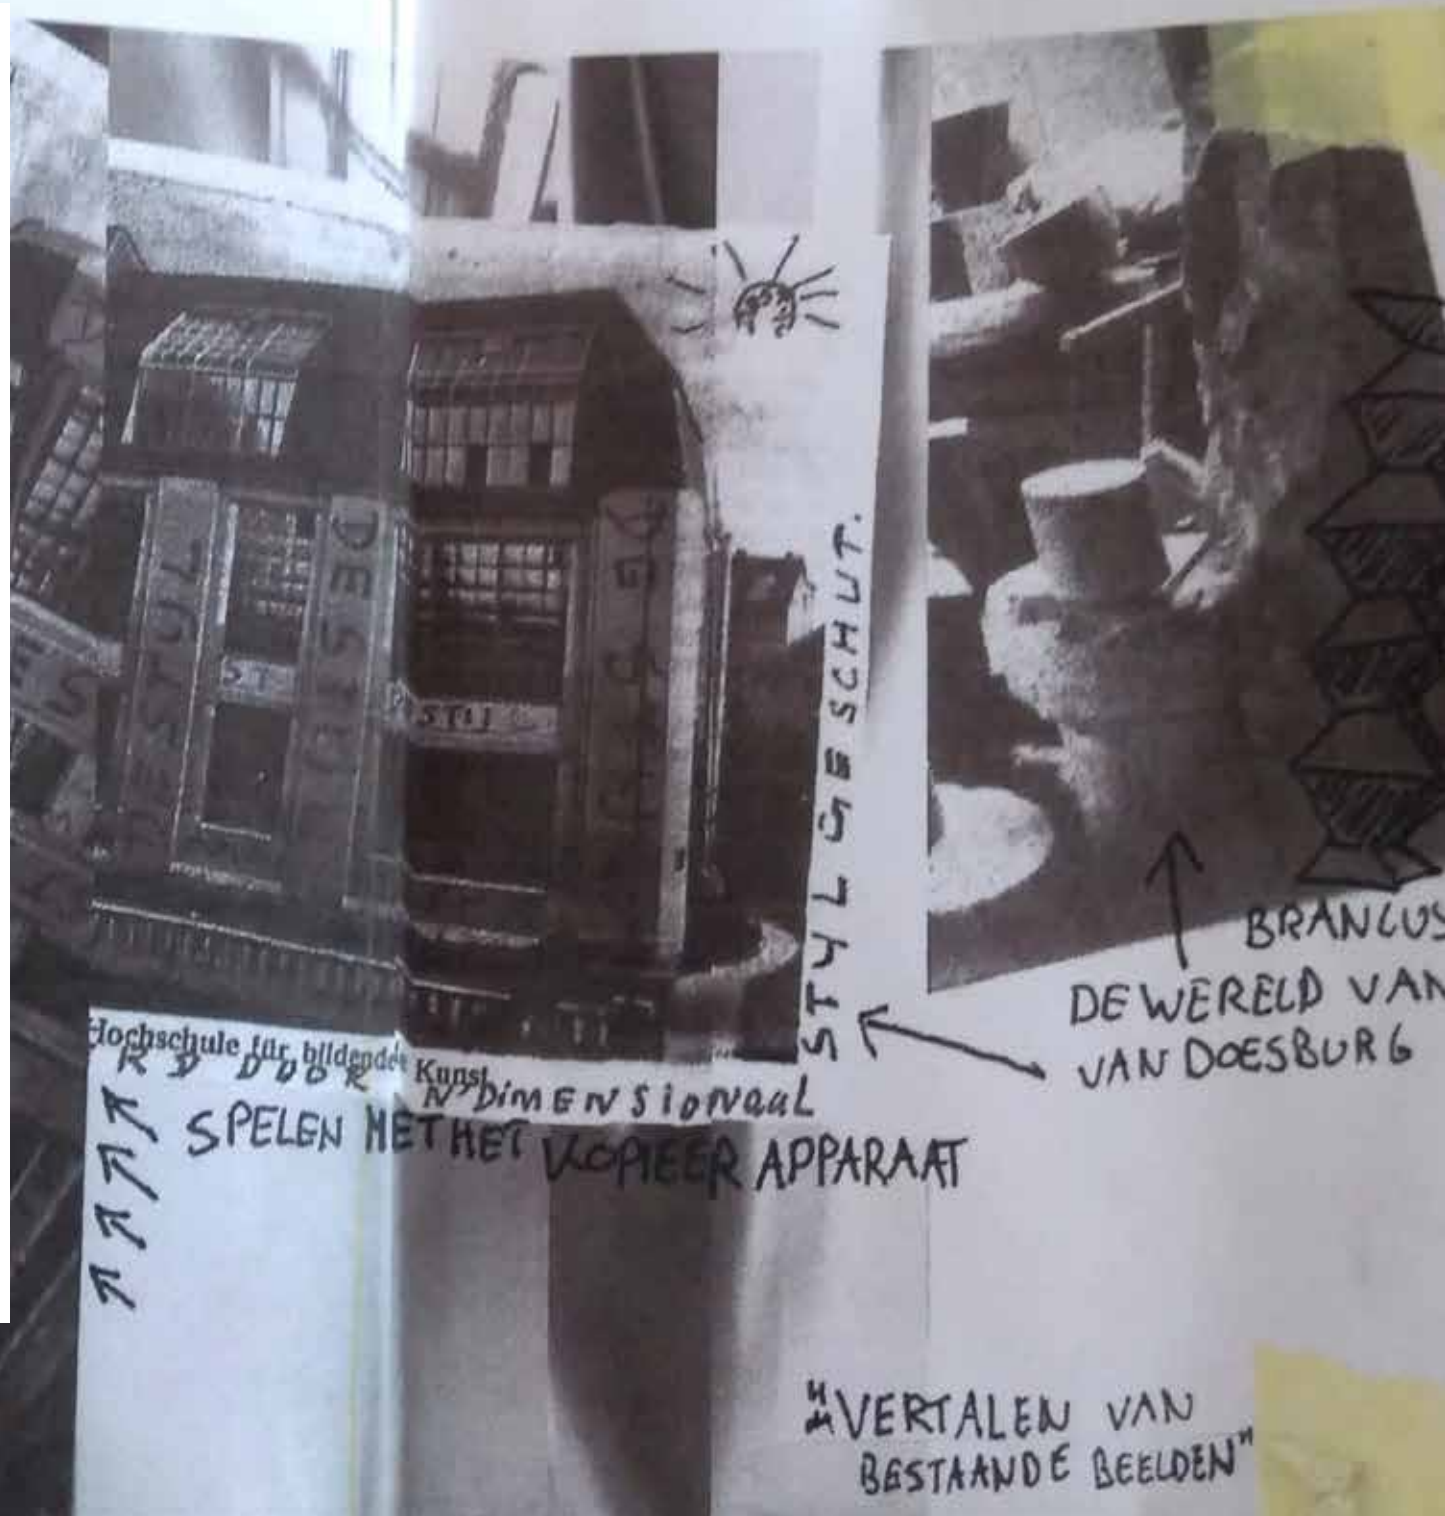 DE STYL
DE STIJL
ST
STIJ
STYLGESCHUT.
Hochschule für bildende Kunst
N DiMENSioNaaL
SPELEN MET HET KOPIEER APPARAAT
BRANCUS
DE WERELD VAN
VAN DOESBURG
"VERTALEN VAN
BESTAANDE BEELDEN"